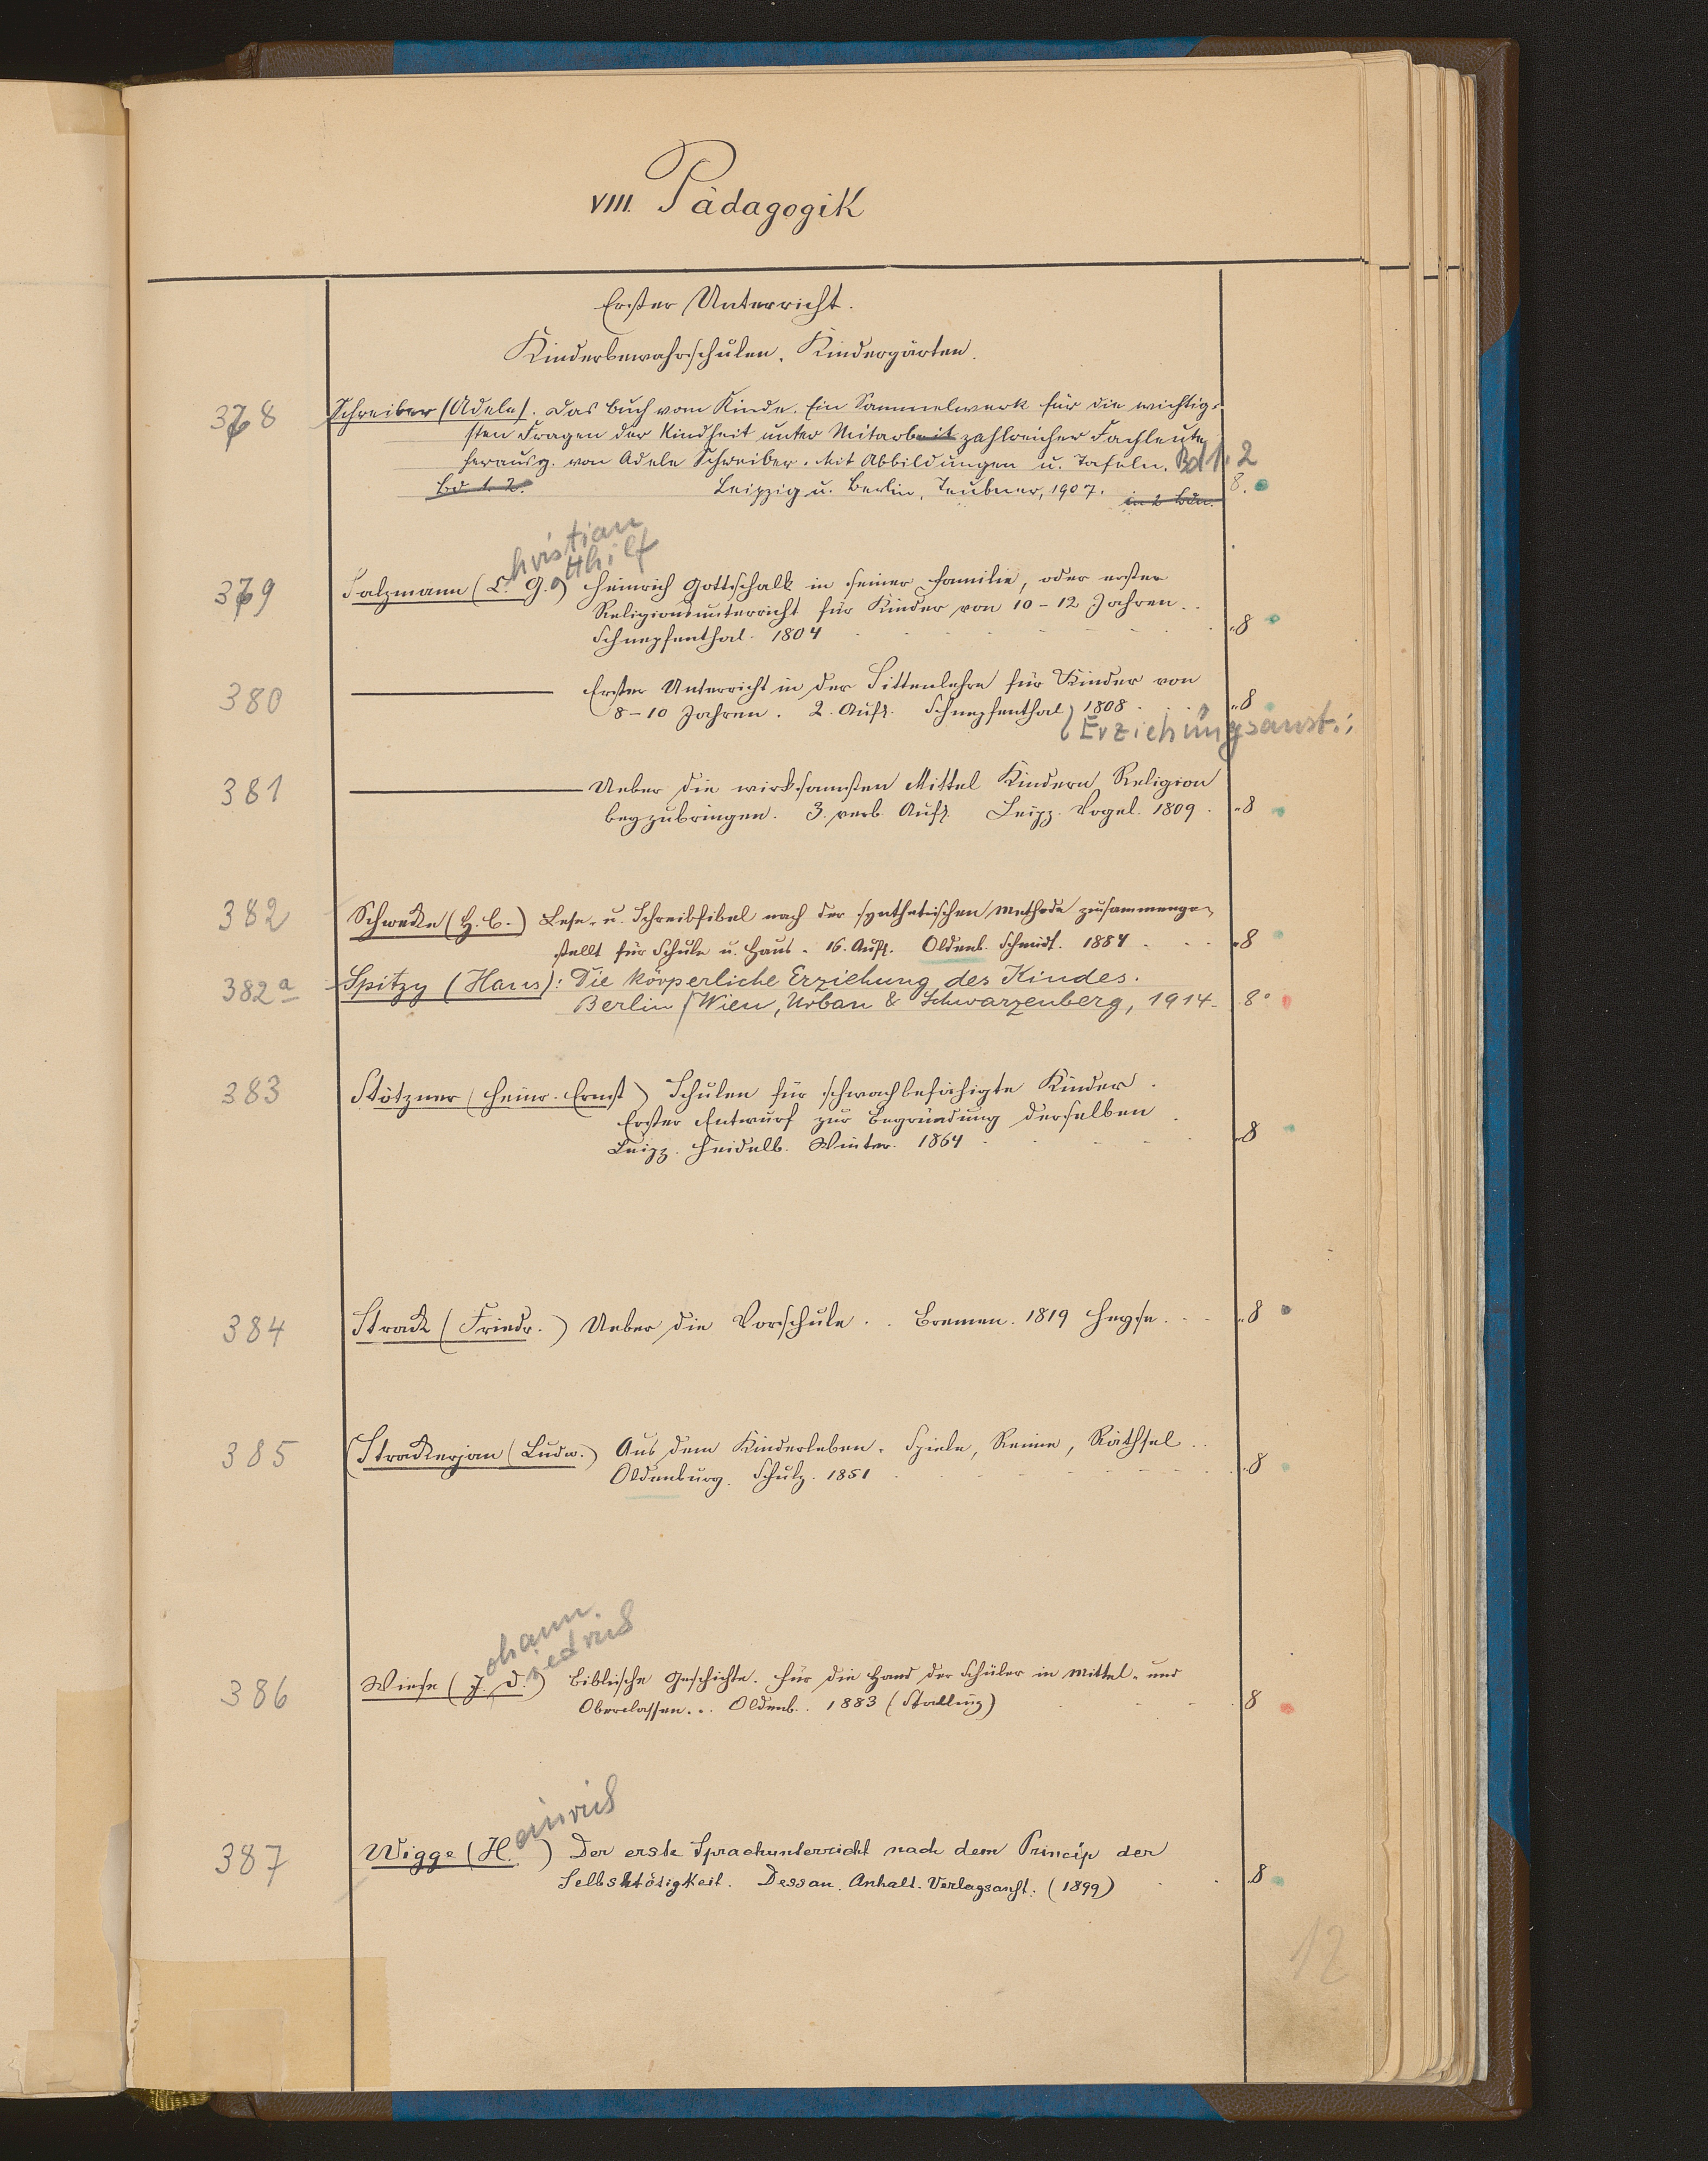 VIII. Pädagogik
Erster Unterricht.
Kinderbewahrschulen, Kindergärten.
378 Schreiber (Adele). Das Buch vom Kinde. Ein Sammelwerk für die wichtig-
sten Fragen der Kindheit unter Mitarbeit zahlreicher Fachleute
herausg. von Adele Schreiber. Mit Abbildungen u. Tafeln. Bd 1. 2
Bd 1. 2. Leipzig u. Berlin, Teubner, 1907. in 2 Bdn. 8.
christian
otthilf
379 Salzmann (C. G.) Heinrich Gottschalk in seiner Familie, oder erster
Religionsunterricht für Kinder von 10-12 Jahren..
Schnepfenthal. 1804 8
380 Erster Unterricht in der Sittenlehre für Kinder von
8-10 Jahren. 2. Aufl. Schnepfenthal, 1808. 8
(Erziehungsanst.;
381 Ueber die wirksamsten Mittel Kindern Religion
beyzubringen. 3. verb. Aufl. Leipz. Vogel. 1809. 8
382 Schwecke (H. C.) Lese- u. Schreibfibel nach der synthetischen Methode zusammenge-
stellt für Schule u. Haus. 16. Aufl. Oldenb. Schmidt. 1884 8
382a Spitzy (Hans): Die körperliche Erziehung des Kindes.
Berlin/Wien, Urban & Schwarzenberg, 1914. 8°
383 Stötzner (Heinr. Ernst) Schulen für schwachbefähigte Kinder.
Erster Entwurf zur Begründung derselben
Leipz. Heidelb. Winter. 1864 8
384 Strack (Friedr.) Ueber die Vorschule.. Bremen. 1819 Heyse... 8
385 (Strackerjan (Ludw.) Aus dem Kinderleben. Spiele, Reime, Räthsel..
Oldenburg. Schulz. 1851 8
ohann
iedrich
386 Wiese (J. D.) Biblische Geschichte. Für die Hand der Schüler in Mittel- und
Oberclassen... Oldenb.. 1883 (Stalling) 8
einrich
387 Wigge (H.) Der erste Sprachunterricht nach dem Princip der
Selbsttätigkeit. Dessau. Anhalt. Verlagsanst. (1899) 8
12